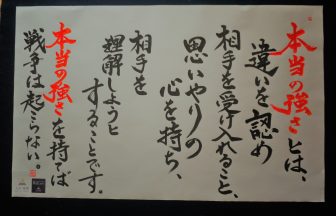 本当の強さとは、
違いを認め
相手を受け入れること、
思いやりの
心を持ち、
相手を
理解しようと
することです。
本当の強さを持てば
戦争は起こらない。